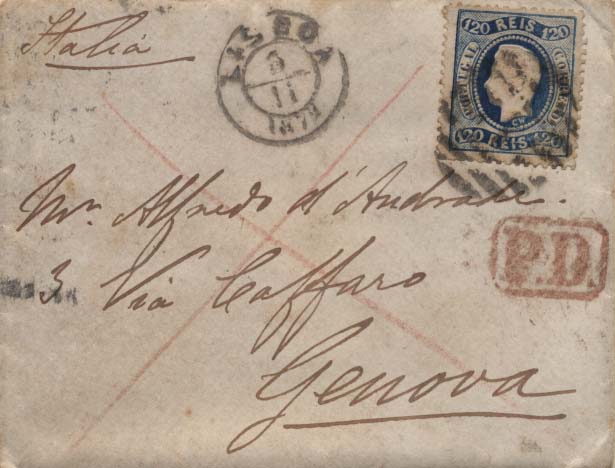 Italia
LISBOA
5
11
187
120 REIS 120
PORTUGAL
CORREIO
CW
120 REIS 120
Mr. Alfredo d'Andrade.
P.D.
3 Via Caffaro
Genova